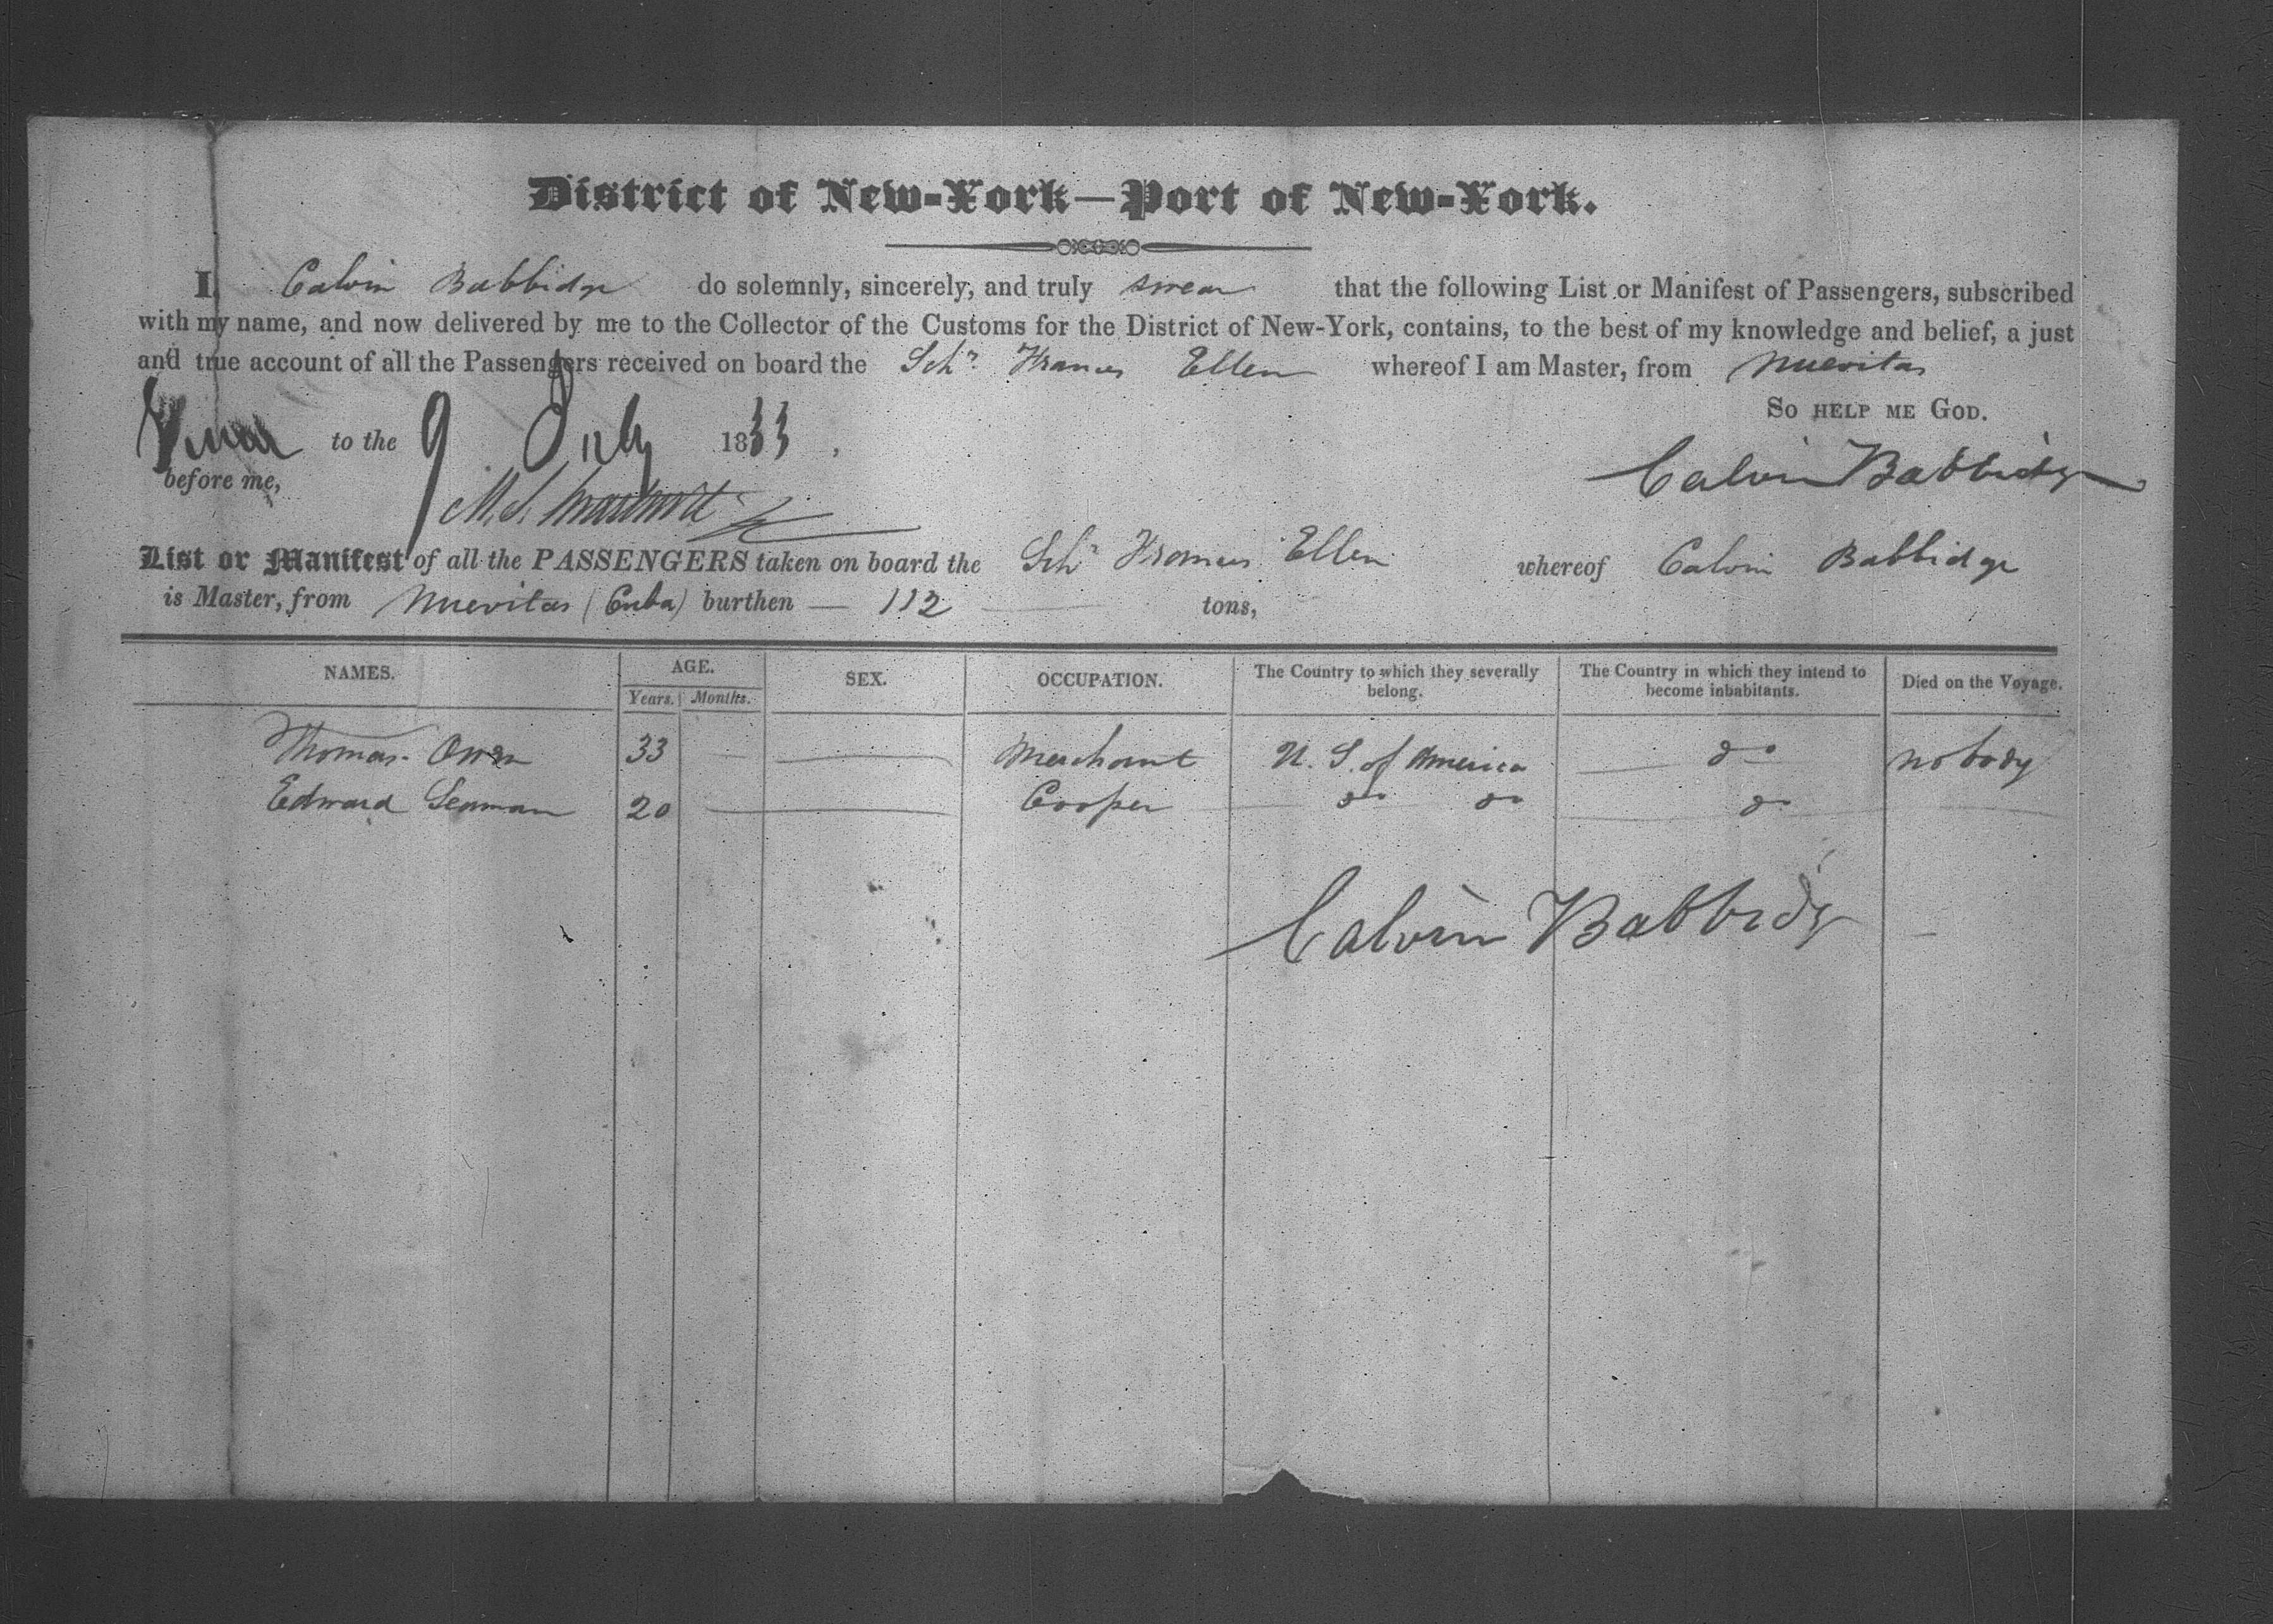 District of New-York—Port of New-York.
I, Calvin Babbidge do solemnly, sincerely, and truly swear that the following List or Manifest of Passengers, subscribed
with my name, and now delivered by me to the Collector of the Customs for the District of New-York, contains, to the best of my knowledge and belief, a just
and true account of all the Passengers received on board the Schr Frances Ellen whereof I am Master, from Nuevitas
So help me God.
to the 9 July 1833,
before me,
Calvin Babbidge
M. S.
List or Manifest of all the PASSENGERS taken on board the Schr Frances Ellen whereof Calvin Babbidge
is Master, from Nuevitas (Cuba) burthen — 112 tons,
NAMES. AGE. SEX. OCCUPATION. The Country to which they severally belong. The Country in which they intend to become inhabitants. Died on the Voyage.
Years. Months.
Thomas Owen 33 Merchant U. S. of America do nobody
Edward Seaman 20 Cooper do do do
Calvin Babbidge